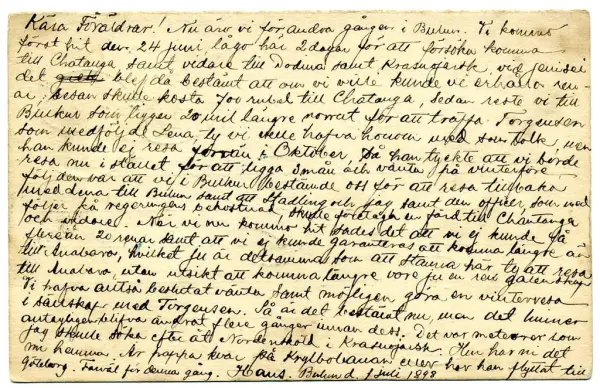 Kära Föräldrar! Nu äro vi för andra gången i Bulun. Vi kommo
först hit den 24 juni, lågo här 2 dagar för att försöka komma
till Chatanga samt vidare till Dodina samt Krasnojarsk vid Jenisei
det blef då bestämt att om vi ville kunde vi erhålla ren-
ar. Resan skulle kosta 700 rubel till Chatanga, sedan reste vi till
Bulkur som ligger 20 mil längre norrut för att träffa Torgersen
som medföljde Lena, ty vi ville hafva honom med som tolk, men
han kunde ej resa förrän i Oktober, Då han tyckte att vi borde
resa nu i stället för att ligga och vänta på vinterföre
följden var att vi i Bulkur bestämde oss för att resa tillbaka
med Lena till Bulun samt att Stadling och jag samt den officer, som med-
följer på regeringens bekostnad skulle företaga en färd till Chantanga
och vidare. När vi nu kommo hit sades det att vi ej kunde få
flere än 20 renar samt att vi ej kunde garanteras att komma längre än
till Anabaros, hvilket ju är detsamma som att stanna här ty att resa
till Anabara, utan utsikt att komma längre vore ju en ren galenskap
Vi hafva altså beslutat vänta samt möjligen göra en vinterresa
i sällskap med Torgersen. Så är det bestämt nu, men det hinner
antagligen blifva ändrat flere gånger innan dess. Det var meteoror som
jag skulle söka efter åt Nordensköld i Krasnojarsk. Hur har ni det
nu hemma. Är pappa kvar på Krylbobanan eller har han flyttat till
Göteborg. Farväl för denna gång. Hans. Bulun d. 1 juli 1898